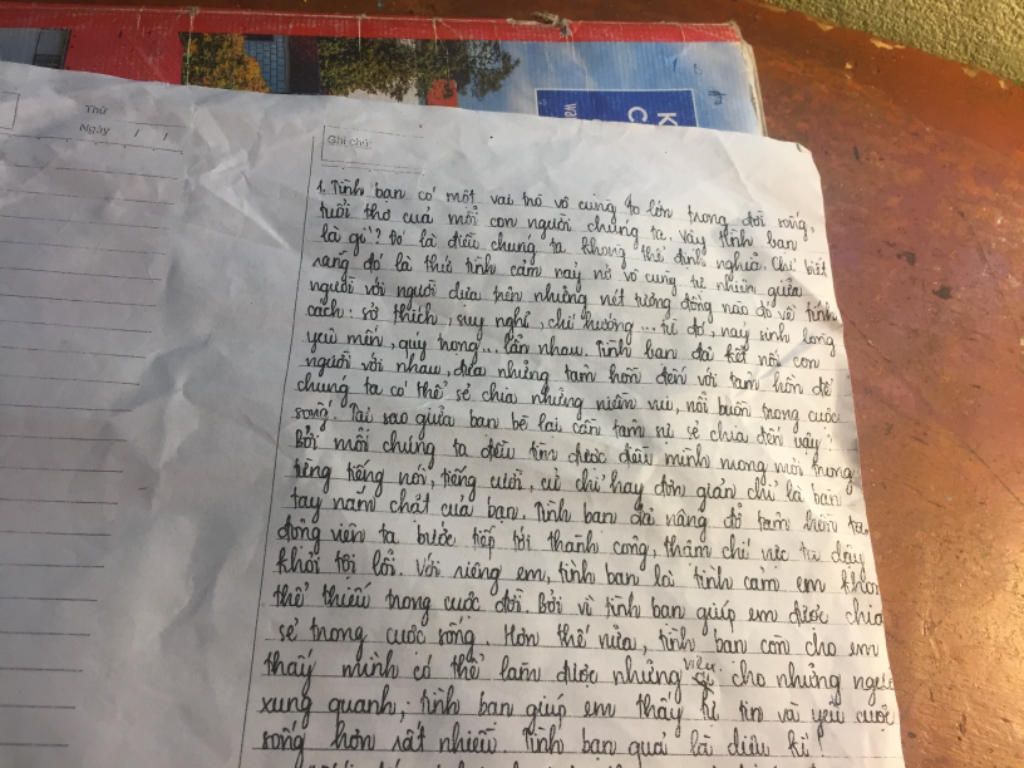 Thứ
Ngày / /
Ghi chú:
1. Tình bạn có một vai trò vô cùng to lớn trong đời sống,
tuổi thơ của mỗi con người chúng ta. Vậy tình bạn
là gì? Đó là điều chúng ta không thể định nghĩa. Chỉ biết
rằng đó là thứ tình cảm nảy nở vô cùng tự nhiên giữa
người với người dựa trên những nét tương đồng nào đó về tính
cách: sở thích, suy nghĩ, chí hướng... từ đó, nảy sinh lòng
yêu mến, quý trọng... lẫn nhau. Tình bạn đã kết nối con
người với nhau, đưa những tâm hồn đến với tâm hồn để
chúng ta có thể sẻ chia những niềm vui, nỗi buồn trong cuộc
sống. Tại sao giữa bạn bè lại cần tâm sự sẻ chia đến vậy?
Bởi mỗi chúng ta đều tìm được điều mình mong mỏi trong
từng tiếng nói, tiếng cười, cử chỉ hay đơn giản chỉ là bàn
tay nắm chặt của bạn. Tình bạn đã nâng đỡ tâm hồn ta,
động viên ta bước tiếp tới thành công, thậm chí vực ta dậy
khỏi tội lỗi. Với riêng em, tình bạn là tình cảm em khôn
thể thiếu trong cuộc đời. Bởi vì tình bạn giúp em được chia
sẻ trong cuộc sống. Hơn thế nữa, tình bạn còn cho em
thấy mình có thể làm được những việc cho những người
xung quanh, tình bạn giúp em thấy tự tin và yêu cuộc
sống hơn rất nhiều. Tình bạn quả là diệu kì!